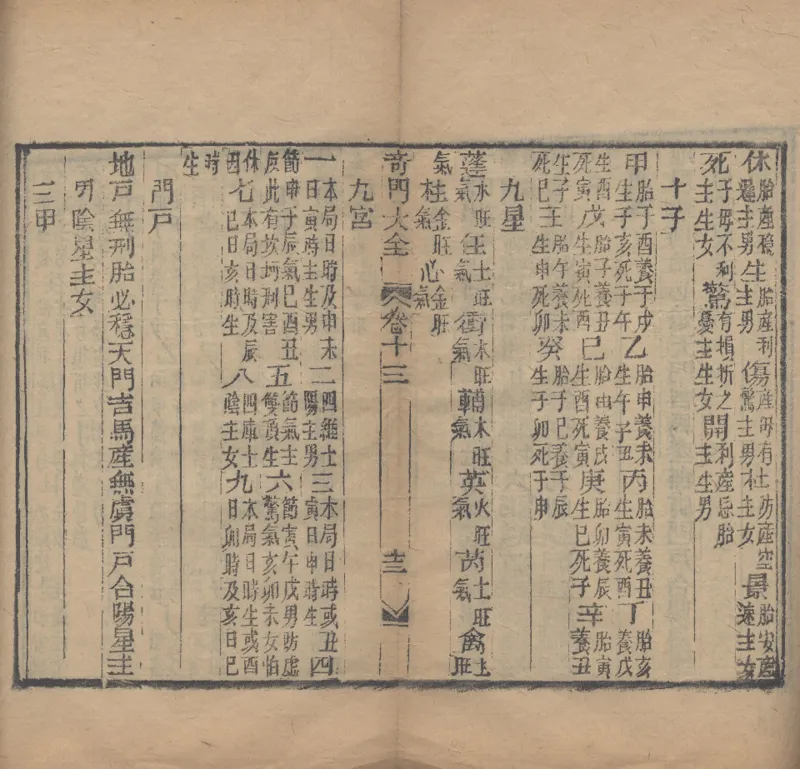 休胎產穩遲主男生胎產利主男傷產母有驚主男杜防產空主女景胎安產速主女
死子母不利主生女驚有損折之憂主生女開利產忌胎主生男
十干
甲胎子酉養于戌生子亥死于午乙胎申養未生午子丑丙胎未養丑生寅死酉丁胎亥養戌
生酉死寅戊胎子養丑生寅死酉己胎申養戌生酉死寅庚胎卯養辰生巳死子辛胎寅養丑
生子死巳壬胎午養未生申死卯癸胎子巳養于辰生于卯死于申
九星
蓬水旺氣任土旺氣衝木旺氣輔木旺氣英火旺氣芮土旺氣禽土旺
氣柱金旺氣心金旺氣
奇門大全 卷十三 十三
九宮
一本局日時及申未日寅時主生男二四維土陽主男三本局日時或丑寅日申時生四
節申子辰氣巳酉丑庚此有坎坷刑害五節氣主雙頂生六節寅午戌男防虛驚氣亥卯未女怕
休囚七本局日時及辰巳日亥時生八四庫土陰主女九本局日時生或酉日卯時及亥日巳
時生
門戶
地戶無刑胎必穩天門吉馬產無虞門戶合陽星主
男陰星主女
三甲